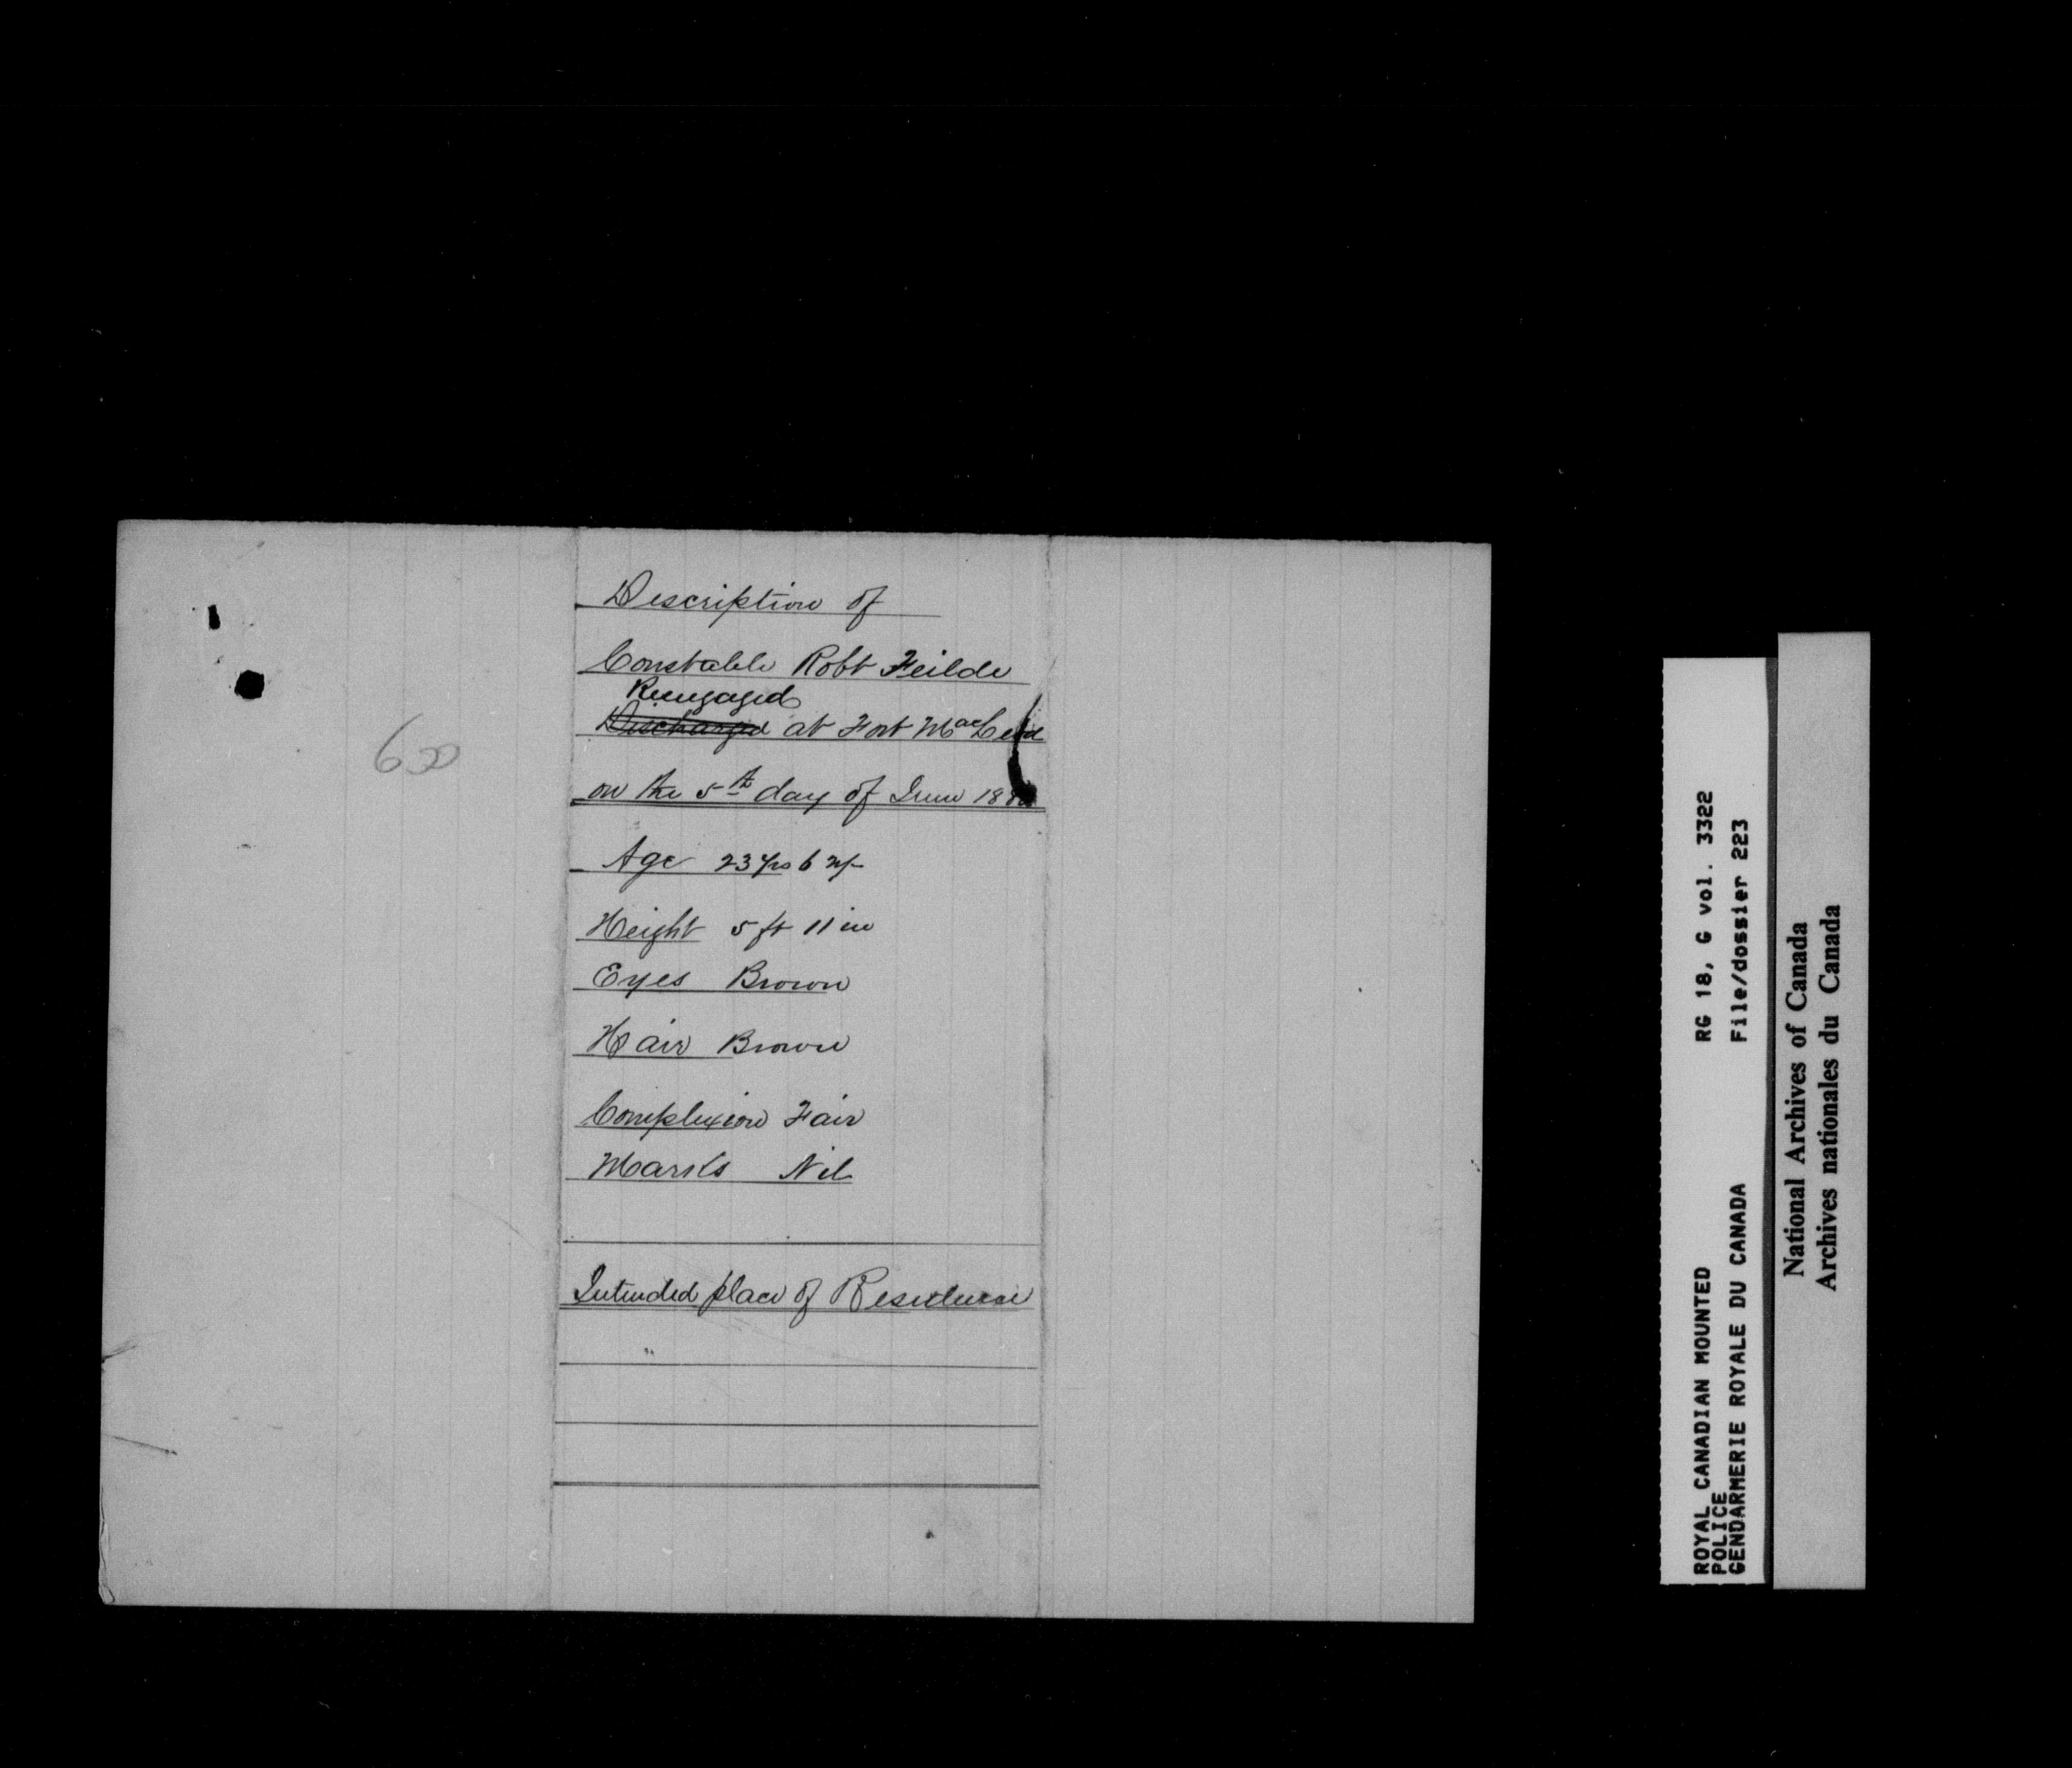 Description of
Constable Robt Feilde
Reengaged
Discharged at Fort MacLeod
on the 5th day of June
Age 23 yrs 6
Height 5 ft 11 in
Eyes Brown
Hair Brown
Complexion Fair
Marks Nil
Intended place of Residence
"
ROYAL CANADIAN MOUNTED
POLICE
GENDARMERIE ROYALE DU CANADA
RG 18, G vol. 3322
File/dossier 223
National Archives of Canada
Archives nationales du Canada